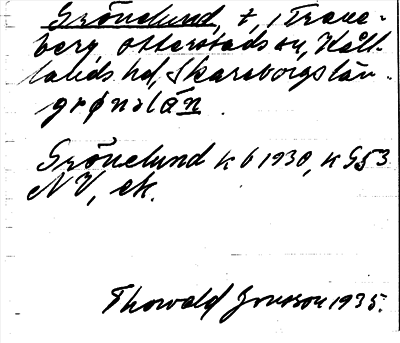 Grönelund, t, i Trane-
berg Otterstads sn, Kål-
lands hd, Skaraborgs län.
grønəlán.
Grönelund k 6 1930, k G53
NV, ek.
Thorvald Jonsson 1935.